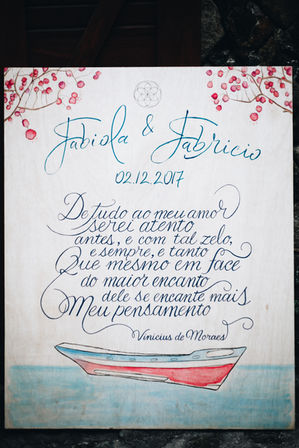 Fabiola & Fabricio
02.12.2017
De tudo ao meu amor
serei atento
antes, e com tal zelo,
e sempre, e tanto
Que mesmo em face
do maior encanto
dele se encante mais
Meu pensamento
Vinicius de Moraes